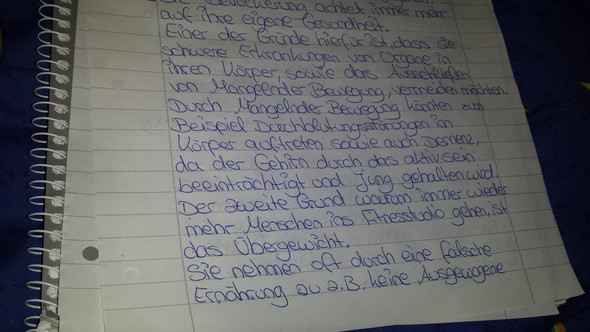 Bevölkerung achtet immer mehr
auf ihre eigene Gesundheit.
Einer der Gründe hierfür ist, dass sie
schwere Erkrankungen von Organe in
ihren Körper, sowie das Ausschließen
von Mangelnder Bewegung, vermeiden möchten.
Durch Mangelnder Bewegung könnten zum
Beispiel Durchblutungsstörungen im
Körper auftreten sowie auch Demenz,
da der Gehirn durch das aktiv sein
beeinträchtigt und Jung gehalten wird.
Der zweite Grund warum immer wieder
mehr Menschen ins Fitnesstudio gehen, ist
das Übergewicht.
Sie nehmen oft durch eine falsche
Ernährung zu z.B. keine Ausgewogene